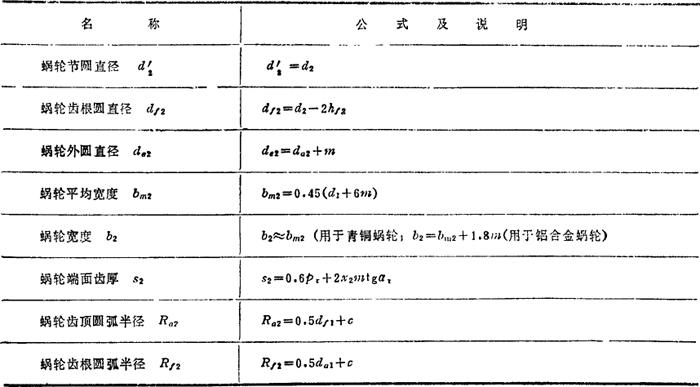 名 称 公 式 及 说 明
蜗轮节圆直径 d′₂ d′₂=d₂
蜗轮齿根圆直径 d_f2 d_f2=d₂−2h_f2
蜗轮外圆直径 d_e2 d_e2=d_a2+m
蜗轮平均宽度 b_m2 b_m2=0.45(d₁+6m)
蜗轮宽度 b₂ b₂≈b_m2 (用于青铜蜗轮; b₂=b_m2+1.8m(用于铝合金蜗轮)
蜗轮端面齿厚 s₂ s₂=0.6p_x+2x₂mtgα_x
蜗轮齿顶圆弧半径 R_a2 R_a2=0.5d_f1+c
蜗轮齿根圆弧半径 R_f2 R_f2=0.5d_a1+c